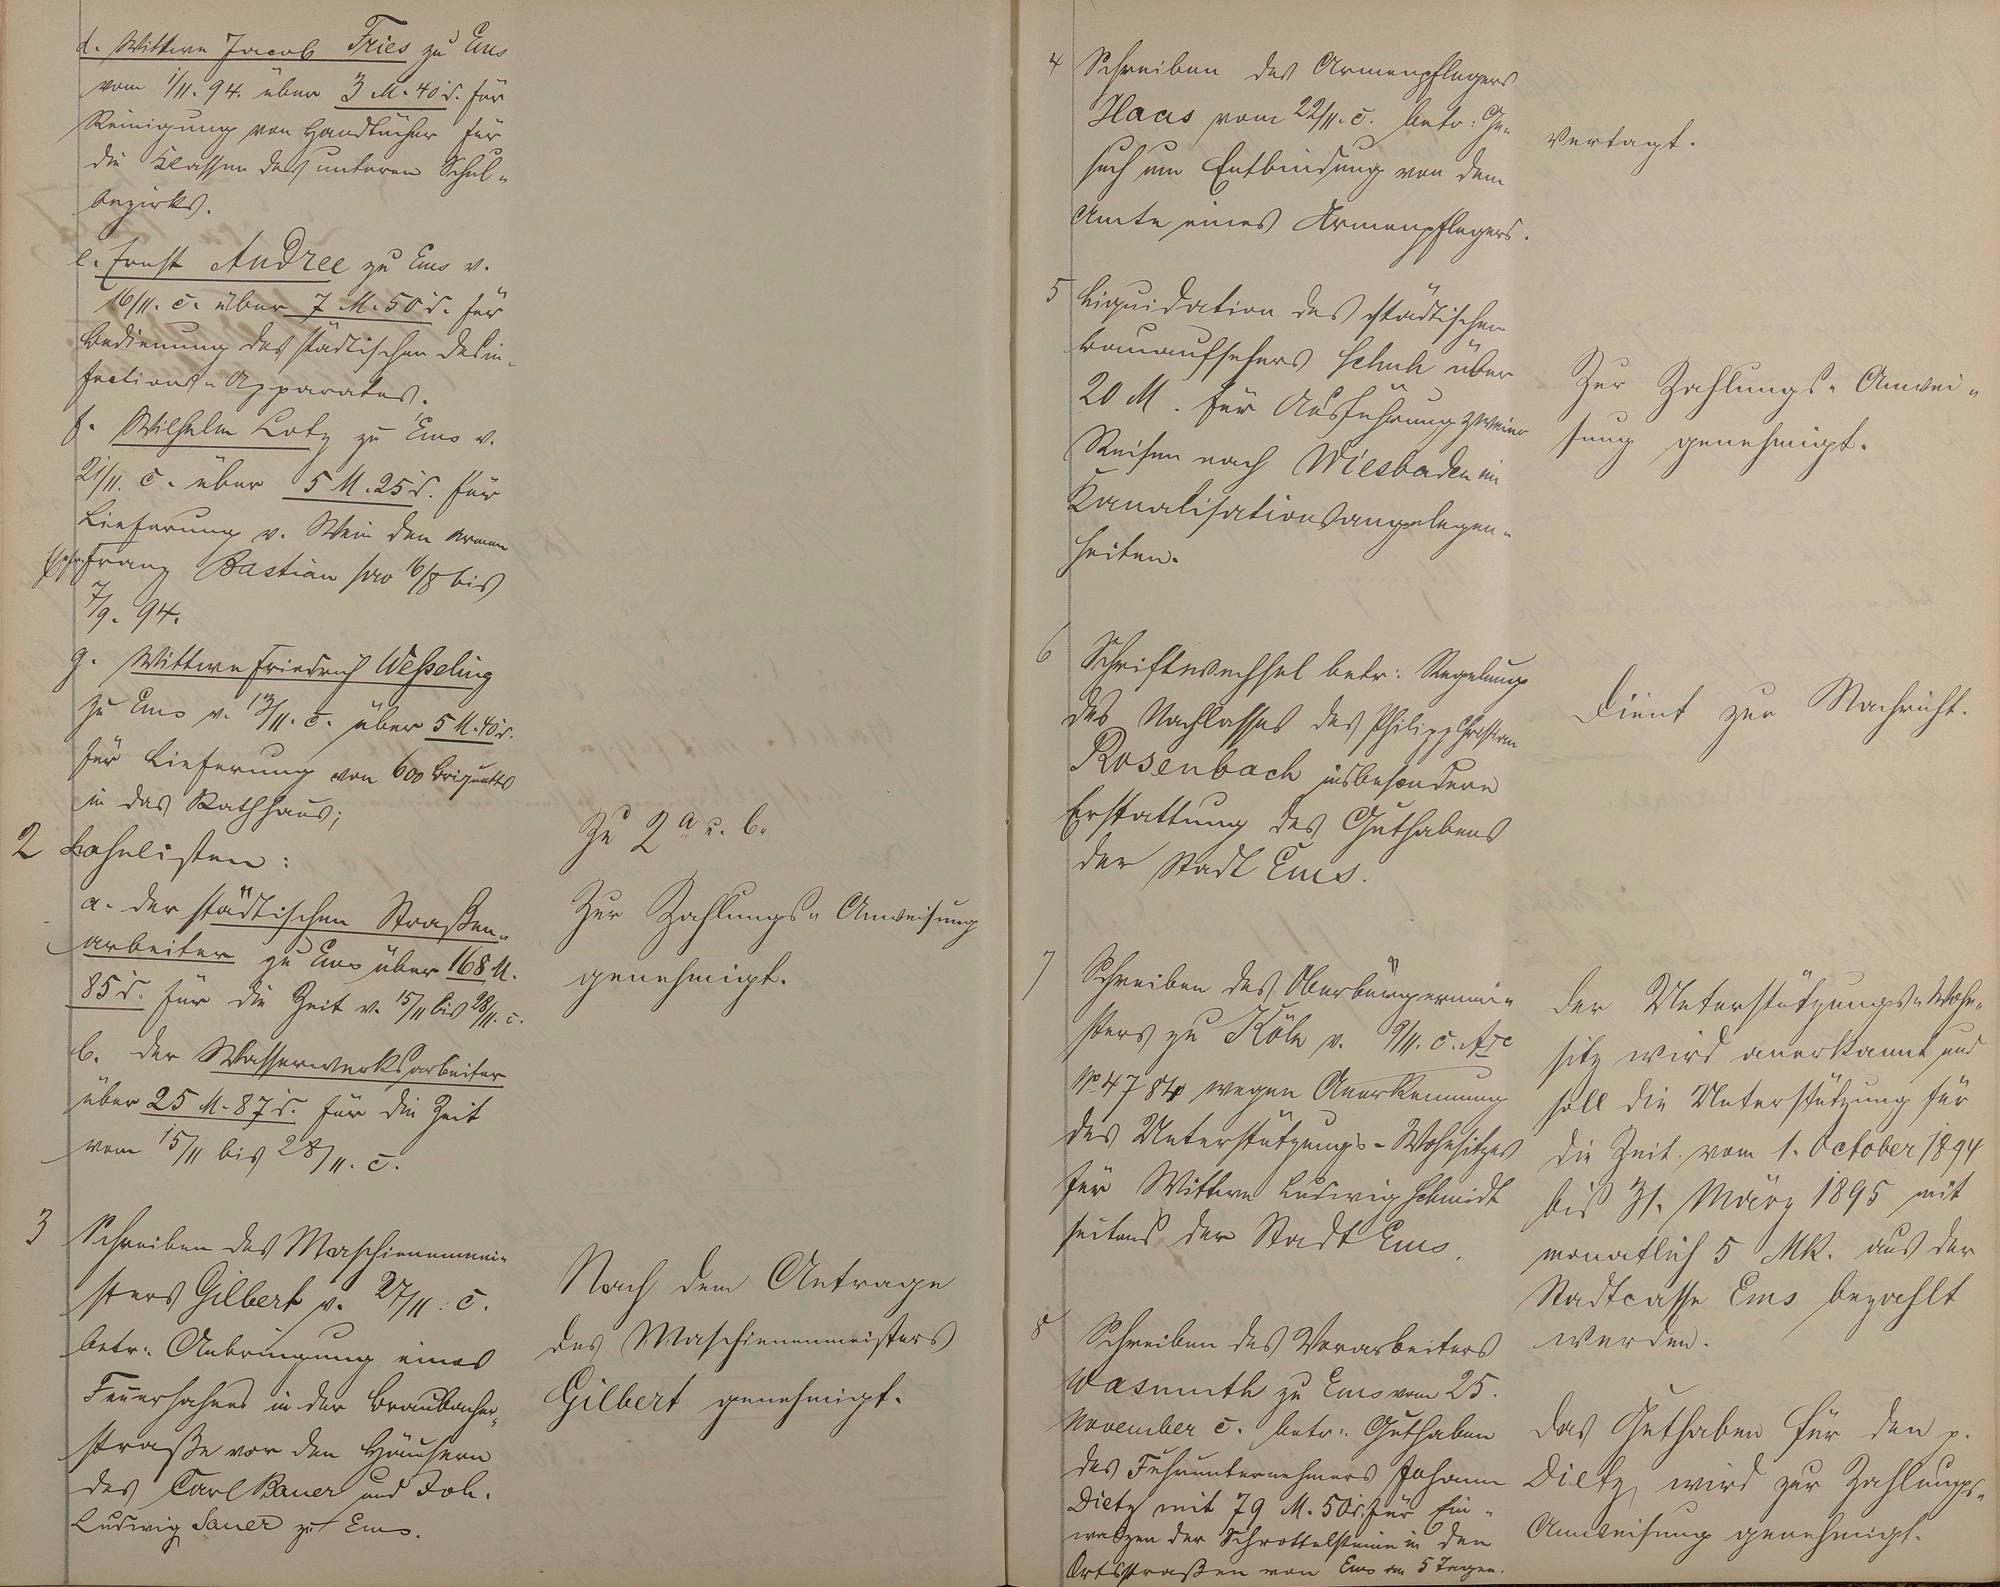 d. Wittwe Jacob Fries zu Ems
vom 1/11. 94. über 3 M. 40 d. für
Reinigung von Handtücher für
die Klassen des unteren Schul-
bezirks.
e. Ernst Andree zu Ems v.
16/11. c. über 7 M. 50 d. für
Bedienung des städtischen Desin-
fections-Apparates.
f. Wilhelm Lotz zu Ems v.
21/11. c. über 5 M. 25 d. für
Lieferung v. Wein den armen
Franz Bastian pro 16/8 bis
7/9. 94.
g. Wittwe Friedrich Weßeling
zu Ems v. 13/11. c. über 5 M. 40 d.
für Lieferung von 600 Briquetts
in das Rathhaus;
2 Lohnlisten:
a. der städtischen Straßen-
arbeiter zu Ems über 168 M.
85 d. für die Zeit v. 15/11 bis 28/11. c.
b. der Wasserwerksarbeiter
über 25 M. 87 d. für die Zeit
vom 15/11 bis 28/11. c.
Zu 2 a u. b.
Zur Zahlungs-Anweisung
genehmigt.
3 Schreiben des Maschienenmei-
sters Gilbert v. 27/11. c.
betr. Anbringung eines
Feuerhahnes in der Braubacher-
straße vor den Häusern
des Carl Bauer und Joh.
Ludwig Sauer zu Ems.
Nach dem Antrage
des Maschienenmeisters
Gilbert genehmigt.
4 Schreiben des Armenpflegers
Haas vom 22/11. c. betr: Ge-
such um Entbindung von dem
Amte eines Armenpflegers.
Vertagt.
5 Liquidation des städtischen
Bauaufsehers Schuh über
20 M. für Ausführung zweier
Reisen nach Wiesbaden in
Kanalisationsangelegen-
heiten.
Zur Zahlungs-Anwei-
sung genehmigt.
6 Schriftwechsel betr: Regelung
des Nachlasses des Philipp Christian
Rosenbach insbesondere
Erstattung des Guthabens
der Stadt Ems.
Dient zur Nachricht.
7 Schreiben des Oberbürgermei-
sters zu Köln v. 9/11. c.
No 4784 wegen Anerkennung
des Unterstützungs-Wohnsitzes
für Wittwe Ludwig Schmidt
seitens der Stadt Ems.
Der Unterstützungs-Wohn-
sitz wird anerkannt und
soll die Unterstützung für
die Zeit vom 1. October 1894
bis 31. März 1895 mit
monatlich 5 Mk. aus der
Stadtcasse Ems bezahlt
werden.
8 Schreiben des Vorarbeiters
Wasmuth zu Ems vom 25.
November c. betr: Guthaben
des Fuhrunternehmers Johann
Dietz mit 79 M. 50 d. für Ein-
walzen der Schrottelsteine in den
Ortsstraßen von Ems an 5 Tagen.
Das Guthaben für den p.
Dietz wird zur Zahlungs-
Anweisung genehmigt.